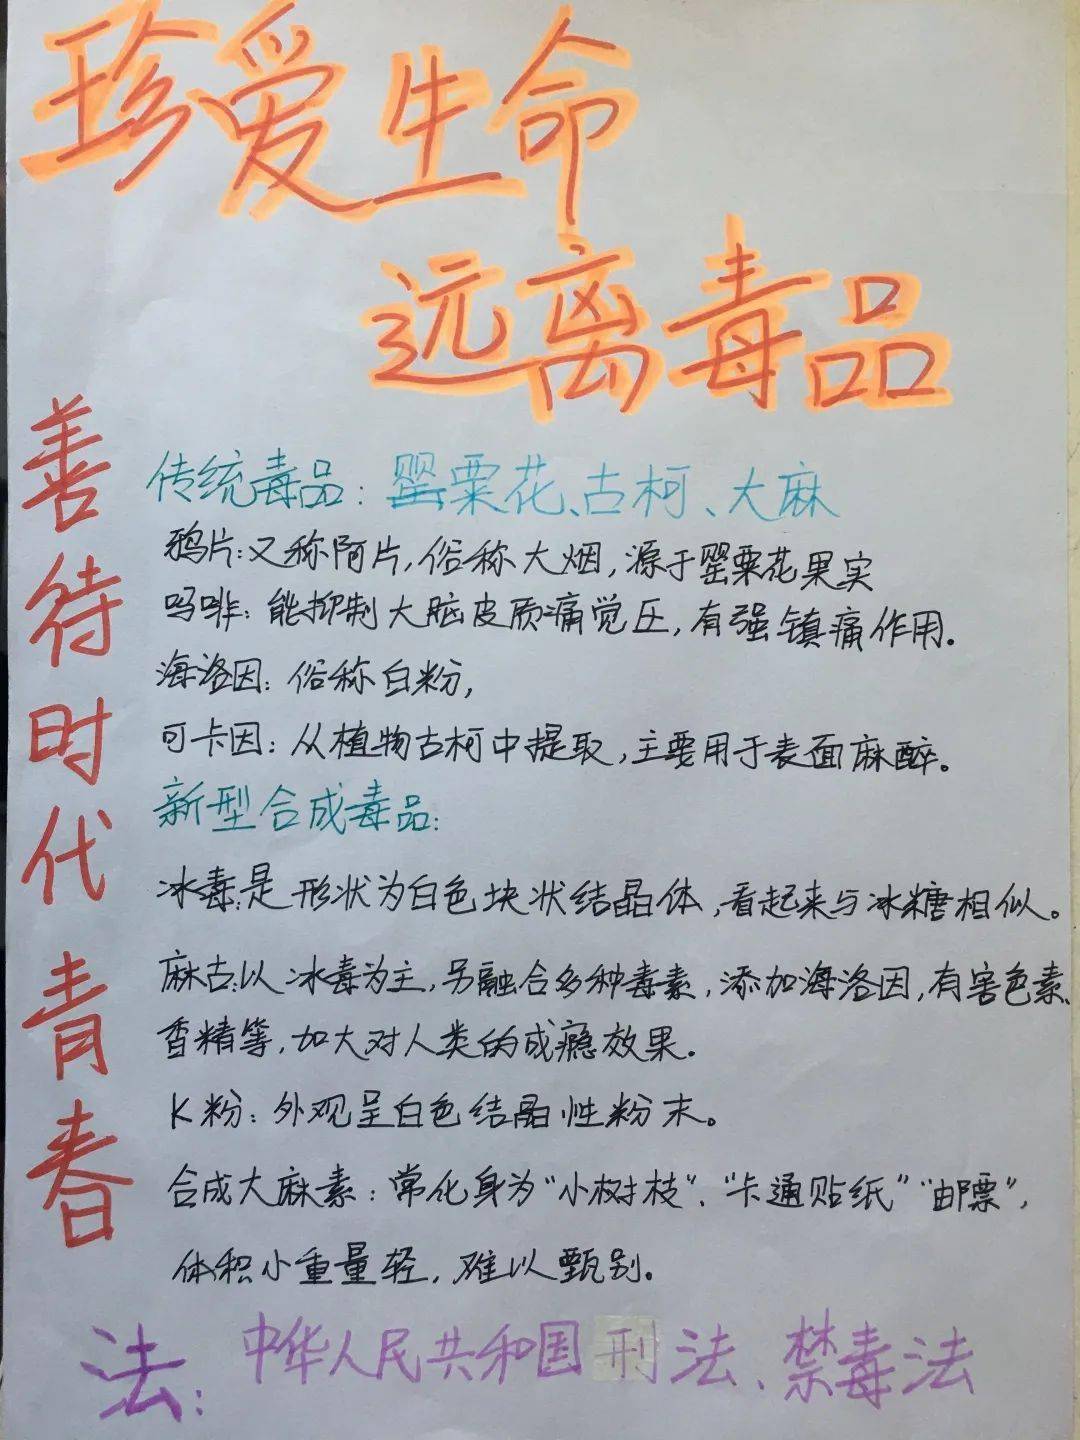 珍爱生命
远离毒品
善待时代青春
传统毒品：罂粟花、古柯、大麻
鸦片：又称阿片，俗称大烟，源于罂粟花果实
吗啡：能抑制大脑皮质痛觉压，有强镇痛作用.
海洛因：俗称白粉，
可卡因：从植物古柯中提取，主要用于表面麻醉。
新型合成毒品：
冰毒：是形状为白色块状结晶体，看起来与冰糖相似。
麻古：以冰毒为主，另融合多种毒素，添加海洛因，有害色素、
香精等，加大对人类的成瘾效果.
K粉：外观呈白色结晶性粉末。
合成大麻素：常化身为“小树枝”、“卡通贴纸”“邮票”，
体积小重量轻，难以甄别。
法：中华人民共和国刑法、禁毒法